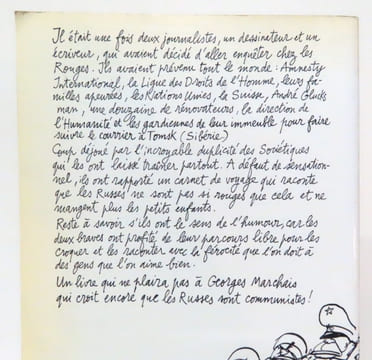 Il était une fois deux journalistes, un dessinateur et un
écriveur, qui avaient décidé d'aller enquêter chez les
Rouges. Ils avaient prévenu tout le monde : Amnesty
International, la Ligue des Droits de l'Homme, leurs fa-
milles apeurées, les Nations Unies, la Suisse, André Glucks
man, une douzaine de rénovateurs, la direction de
l'Humanité et les gardiennes de leur immeuble pour faire
suivre le courrier à Tomsk (Sibérie)
Coup déjoué par l'incroyable duplicité des Soviétiques
qui les ont laissé traîner partout. A défaut de sensation-
nel, ils ont rapporté un carnet de voyage qui raconte
que les Russes ne sont pas si rouges que cela et ne
mangent plus les petits enfants.
Reste à savoir s'ils ont le sens de l'humour, car les
deux braves ont profité de leur parcours libre pour les
croquer et les raconter avec la férocité que l'on doit à
des gens que l'on aime bien.
Un livre qui ne plaira pas à Georges Marchais
qui croit encore que les Russes sont communistes !